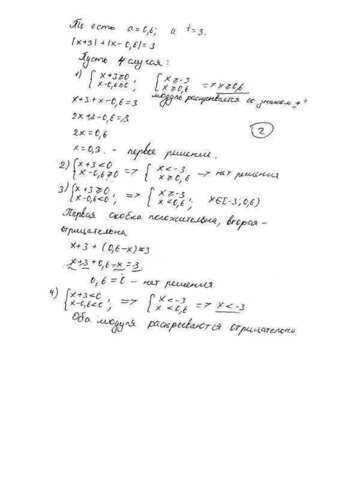 То есть a=0,6; а t=3.
|x+3|+|x-0,6|=3
Пусть 4 случая:
1) { x+3≥0 x-0,6≥0 ; { x≥-3 x≥0,6 => x≥0,6
модуль раскрывается со знаком "+"
x+3+x-0,6=3
2x+3-0,6=3
2x=0,6
x=0,3. - первое решение.
2
2) { x+3<0 x-0,6≥0 => { x<-3 x≥0,6 → нет решения
3) { x+3≥0 x-0,6<0 ; => { x≥-3 x<0,6 ; x∈[-3;0,6)
Первая скобка положительна, вторая -
отрицательна
x+3+(0,6-x)=3
x+3+0,6-x=3
0,6=0 - нет решения
4) { x+3<0 x-0,6<0 ; => { x<-3 x<0,6 => x<-3
Оба модуля раскрываются отрицательно